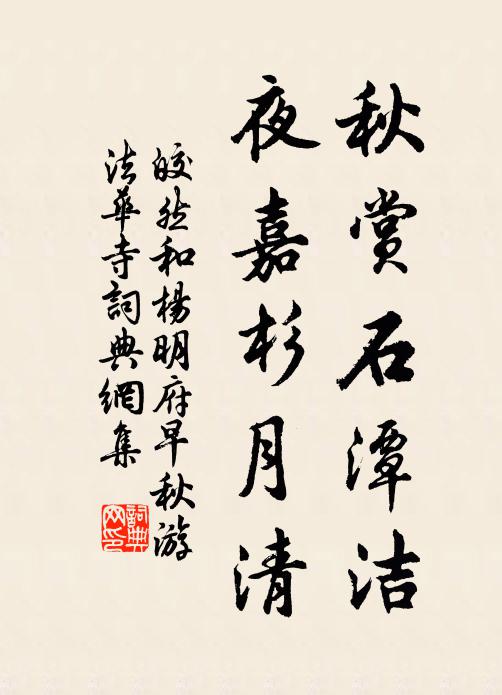 秋赏石潭洁
夜嘉杉月清
皎然和楊明府早秋游
法華寺詞典網集
詞典网印